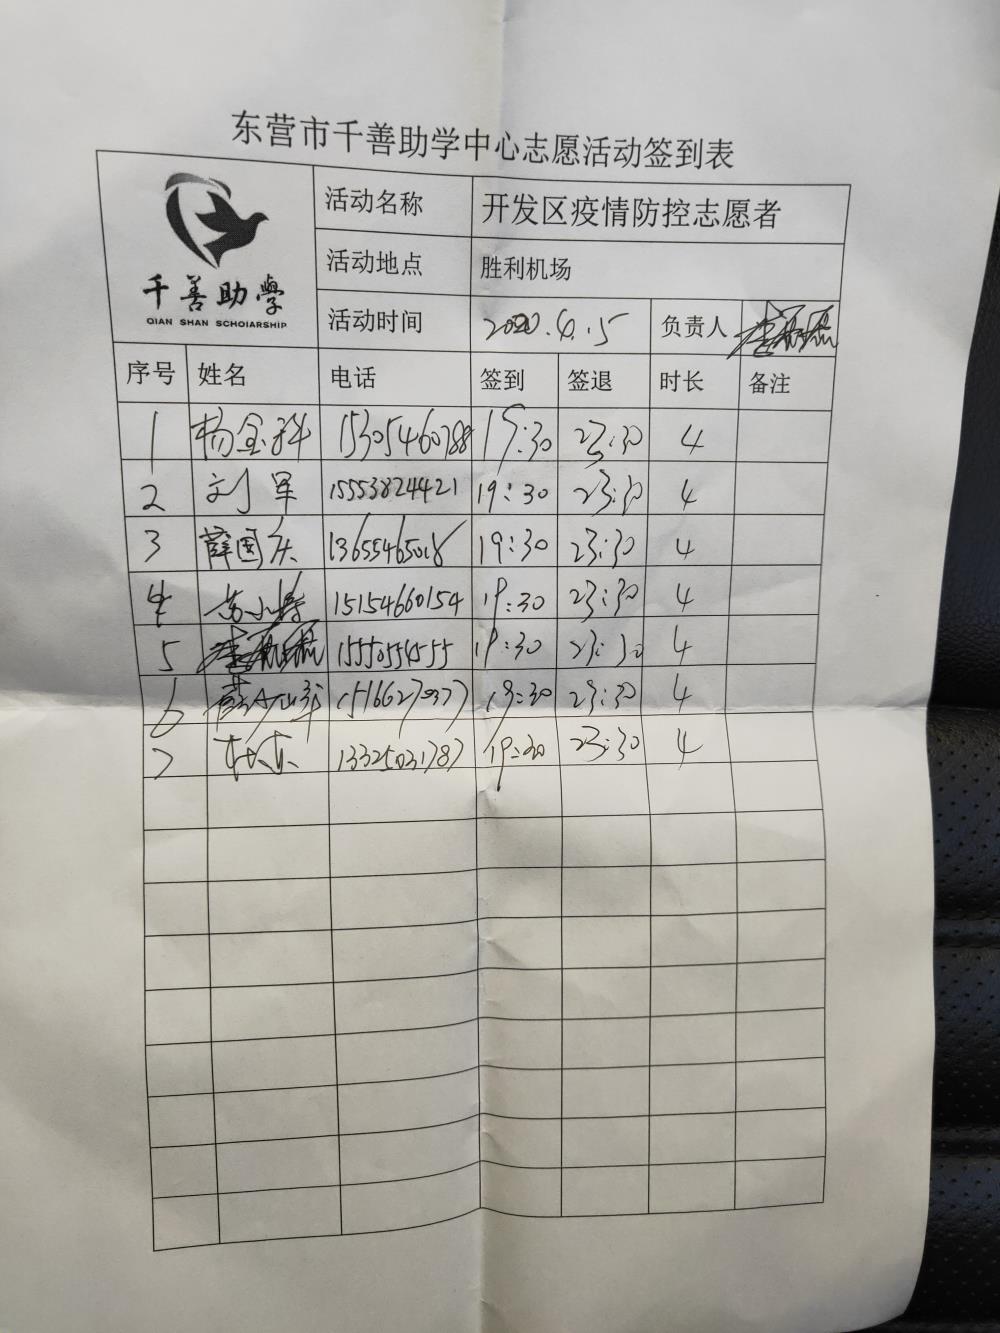 东营市千善助学中心志愿活动签到表
千善助學
QIAN SHAN SCHOIARSHIP
活动名称 开发区疫情防控志愿者
活动地点 胜利机场
活动时间 2020.4.5 负责人
序号 姓名 电话 签到 签退 时长 备注
1 杨金科 15305460788 19:30 23:30 4
2 刘军 15553824421 19:30 23:30 4
3 薛国庆 13655465018 19:30 23:30 4
4 苏小梅 15154660154 19:30 23:30 4
5 19:30 23:30 4
6 15166270377 19:30 23:30 4
7 13325031787 19:30 23:30 4